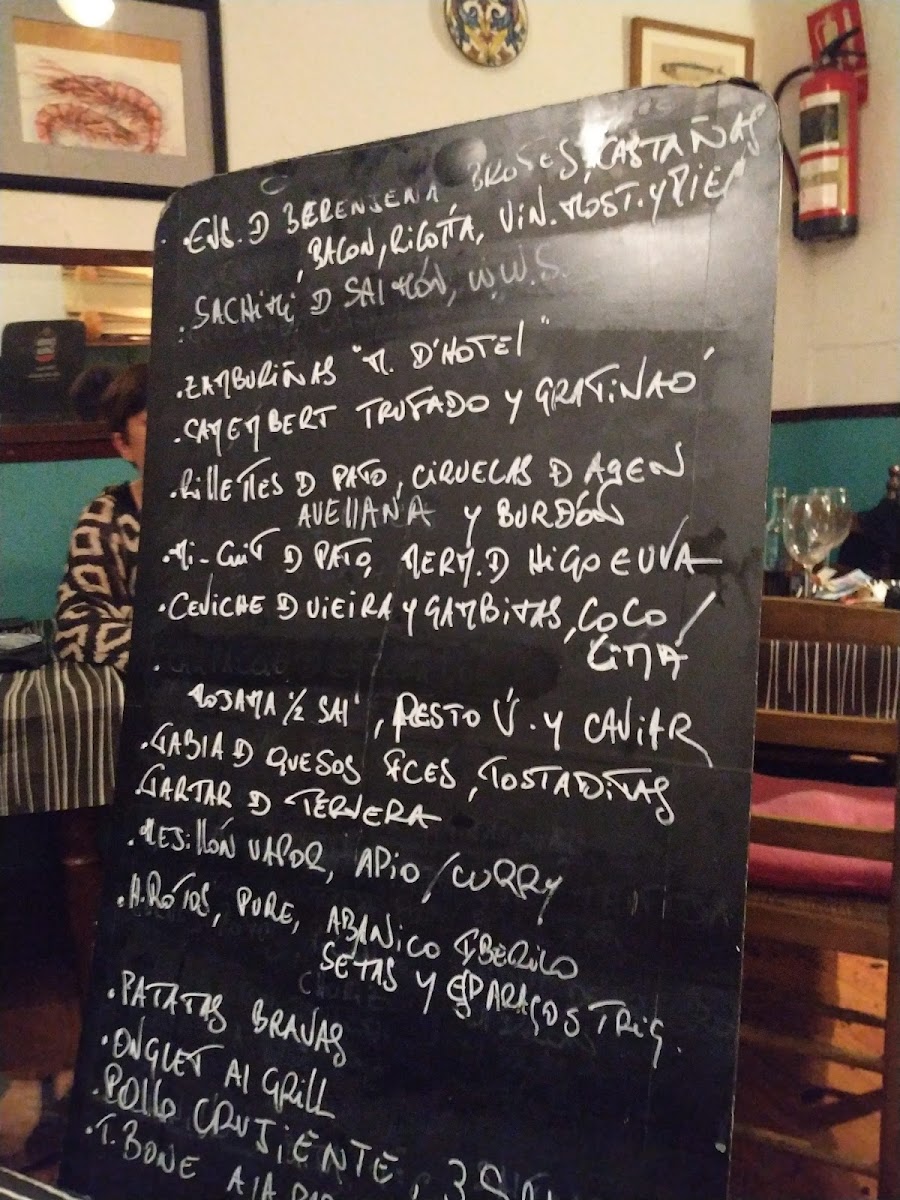 . ENS. D BERENJENA, BROTES, CASTAÑAS
, BACON, RICOTTA, VIN. MOST. Y MIEL
. SACHIMI D SALMÓN, W.W.S.
. ZAMBURIÑAS "M. D'HOTEL"
. CAMEMBERT TRUFADO Y GRATINAO'
. RILLETTES D PATO, CIRUELAS D AGEN
AVELLANA Y BURDÓN
. MI-CUIT D PATO, MERM. D HIGO E UVA
. CEVICHE D VIEIRA Y GAMBITAS, COCO /
LIMA
.
MOJAMA 1/2 SAL, PESTO V. Y CAVIAR
. TABLA D QUESOS FCES, TOSTADITAS
. TARTAR D TERNERA
. MEJILLÓN VAPOR, APIO / CURRY
. H. ROTOS, PURE, ABANICO IBERICO
SETAS Y ESPARAGOS TRIG.
. PATATAS BRAVAS
. ONGLET Al GRILL
. POLLO CRUJIENTE, 3
. T. BONE A LA